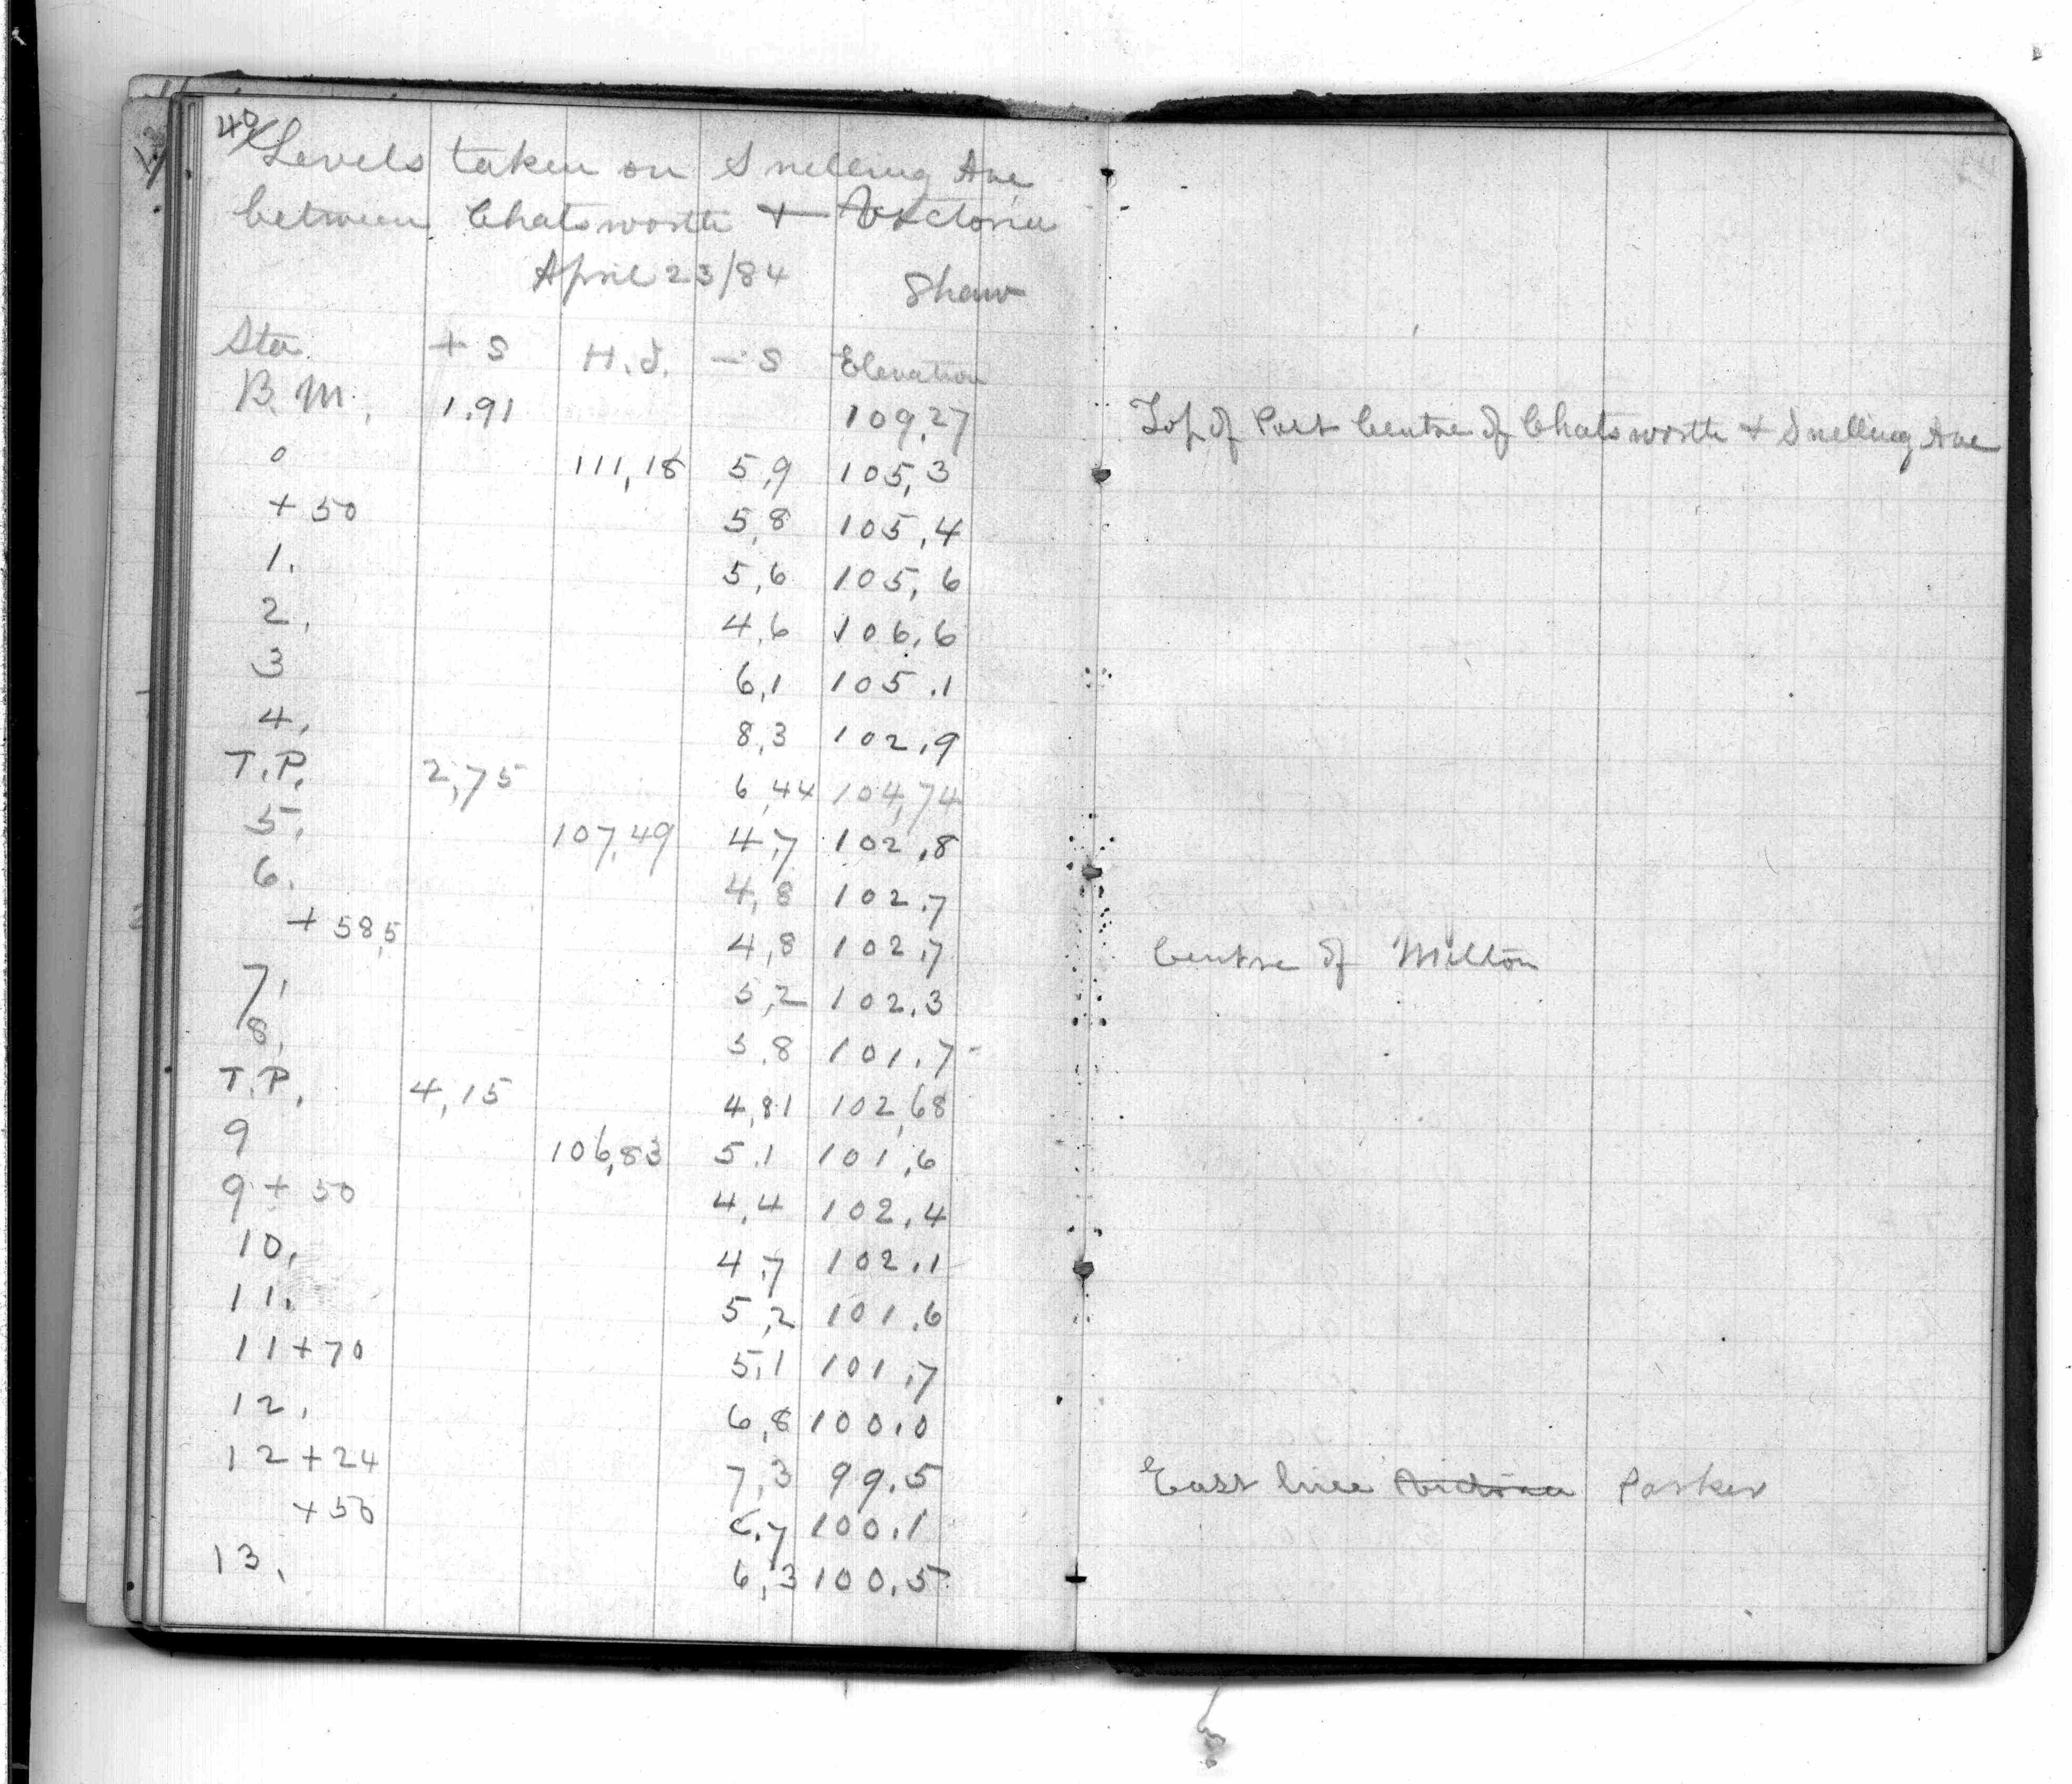 40
Levels taken on Snelling Ave
between Chatsworth + Victoria
April 23/84 Shaw
Sta. + S H.I. - S Elevation
B.M. 1.91 109,27 Top of Post Centre of Chatsworth + Snelling Ave
0 111,18 5,9 105,3
+ 50 5,8 105,4
1. 5,6 105,6
2, 4,6 106,6
3 6,1 105.1
4, 8,3 102,9
T.P. 2,75 6,44 104,74
5, 107,49 4,7 102,8
6. 4,8 102,7
+ 58,5 4,8 102,7 Centre of Milton
7, 5,2 102,3
8, 5,8 101,7
T.P. 4,15 4,81 102,68
9 106,83 5.1 101,6
9 + 50 4,4 102,4
10, 4,7 102,1
11. 5,2 101,6
11 + 70 5,1 101,7
12, 6,8 100,0
12 + 24 7,3 99,5 East line Victoria Parker
+ 50 6,7 100,1
13, 6,3 100,5